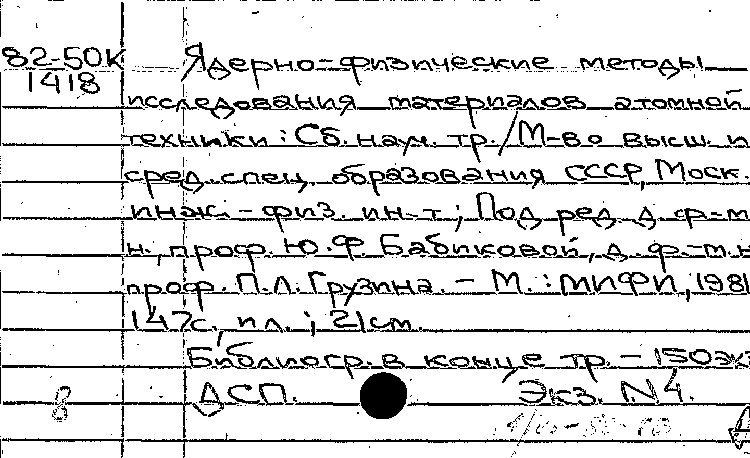 82-50К
1418
Ядерно-физические методы
исследования материалов атомной
техники: Сб. науч. тр./М-во высш. и
сред. спец. образования СССР, Моск.
инж.-физ. ин-т; Под ред. д. ф.-м
н., проф. Ю.Ф. Бабиковой, д. ф.-м.н
проф. П.Л. Грузина. – М.: МИФИ, 1981
147с., ил.; 21см.
Библиогр. в конце тр. – 150экз
8 ДСП. Экз. N4.